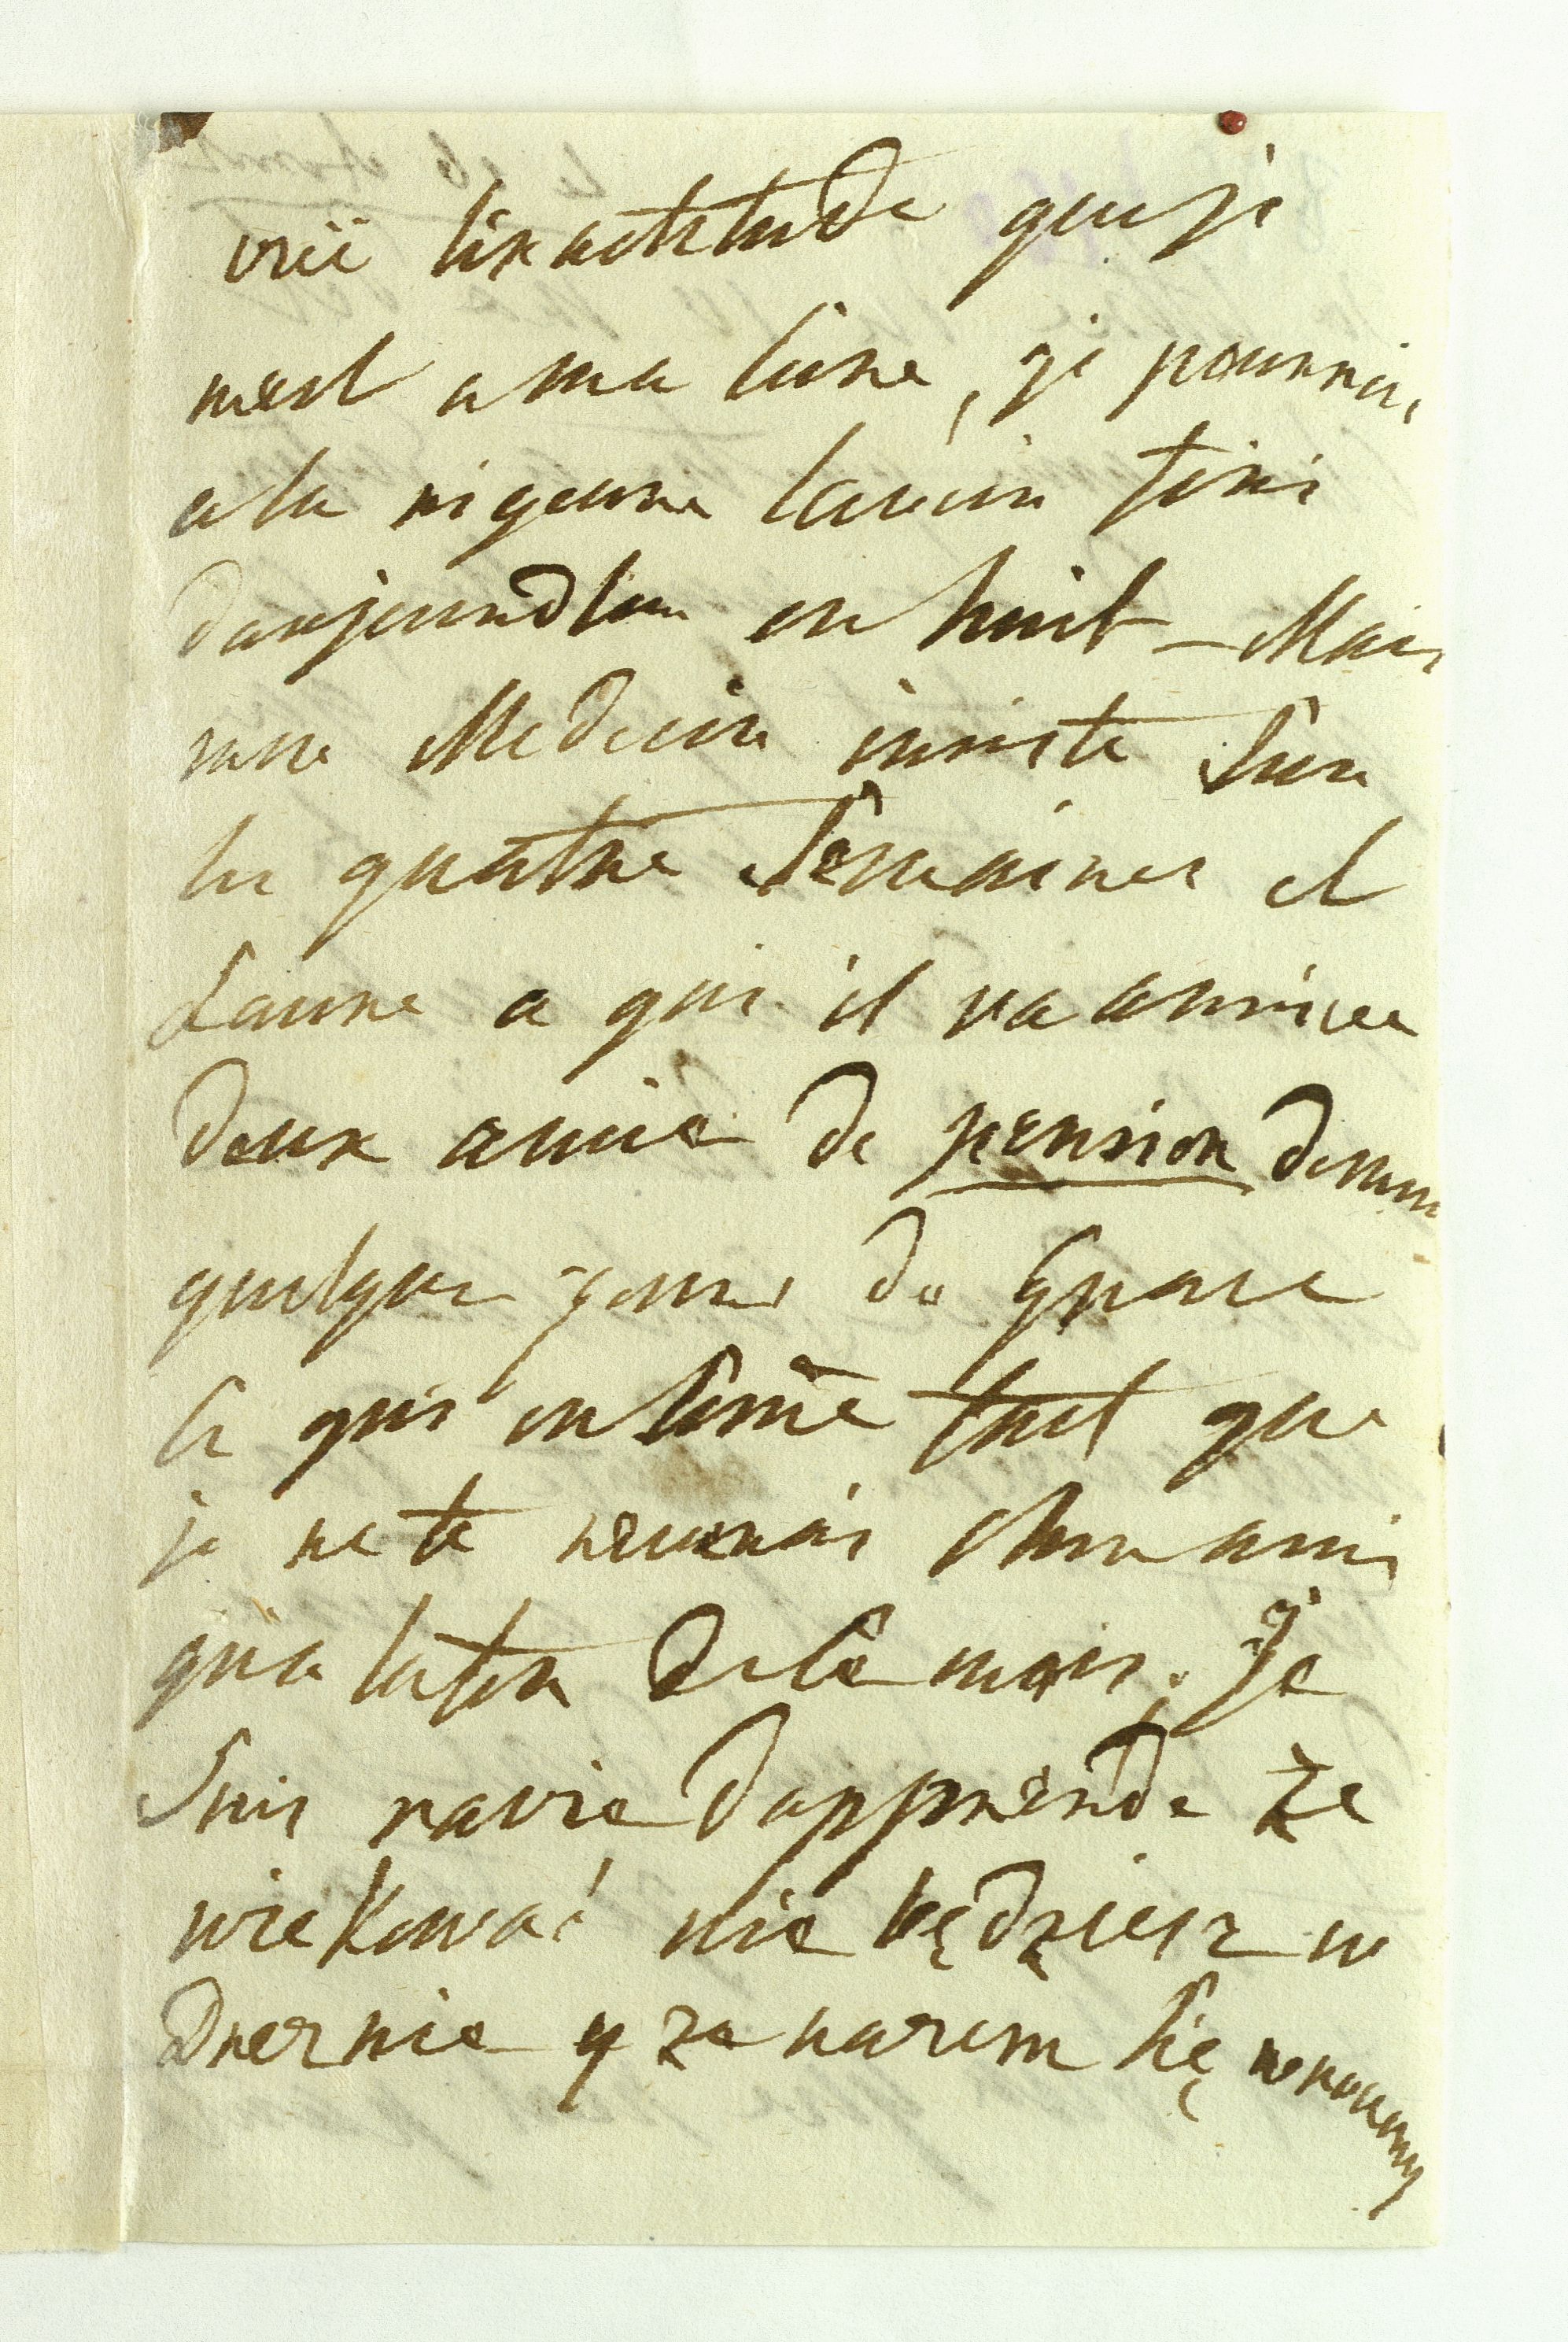 vüe l'exactitude que je
met a ma cure, je pourrai
a la rigeure l'avoir fini
d'aujourd'hui en huit – Mais
mon Medecin insiste sur
les quatre semaines et
Laure a qui il va arriver
deux amie de pension demande
quelque jours de Grace
ce qui en somme fait que
je ne te reverrai cher ami
qu'a la fin de ce mois. Je
suis ravie d'apprende że
wiekować nie będziesz w
Dreznie y że razem się wrócemy